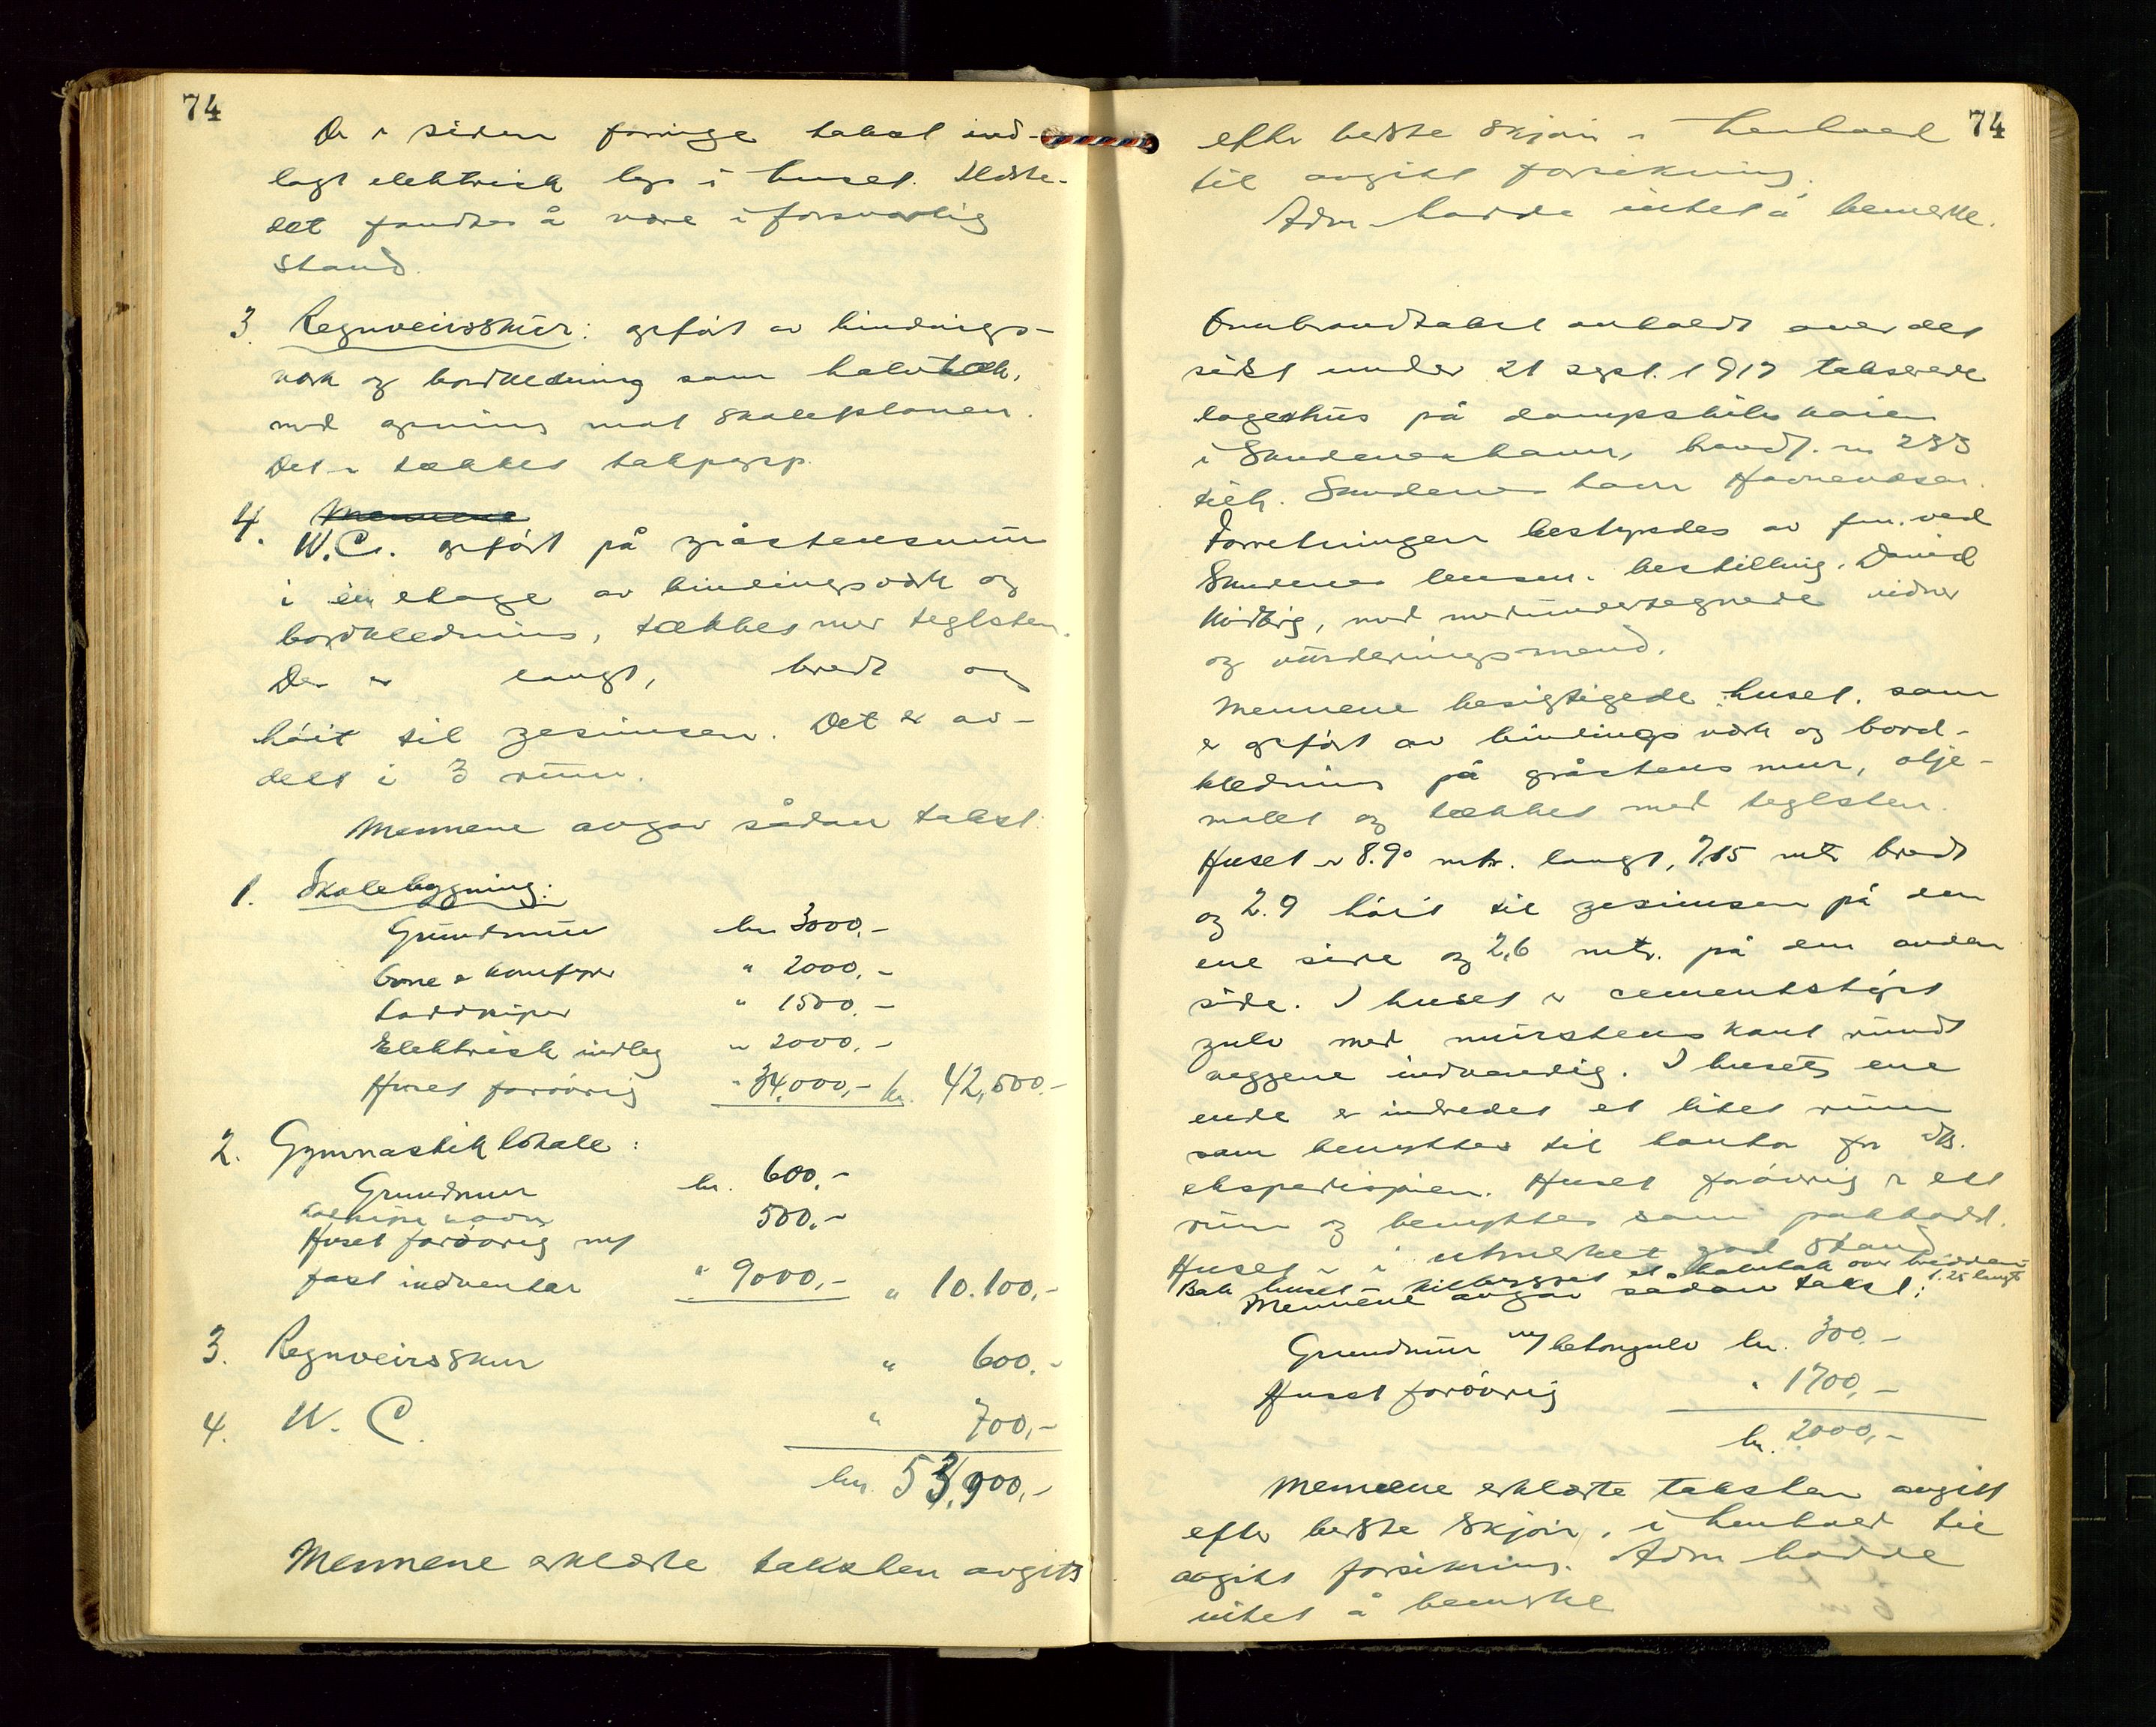 74
Der er siden forrige takst ind-
lagt elektrisk lys i huset. Ildste-
det fandtes å være i forsvarlig
stand.
3. Regnveirsskur: opført av bindings-
verk og bordklædning som halvtak,
med åpning mot skoleplanen.
Det er tækket takpapp.
4. Mennene
W.C. opført på gråstensmur
i en etage av bindingsverk og
bordklædning, tækket med teglsten.
Den er langt, bredt og
høit til gesimsen. Det er av-
delt i 3 rum.
Mennene avgav sådan takst:
1. Skolebygning:
Grundmur kr 3000,-
Ovne & komfyrer " 2000,-
" 1500,-
Elektrisk indlæg " 2000,-
Huset forøvrig " 34,000,- kr. 42,500.-
2. Gymnastiklokale:
Grundmur kr. 600,-
500,-
Huset forøvrig m/
fast indventar " 9000,- " 10.100,-
3. Regnveirsskur " 600,-
4. W. C. " 700,-
kr. 53,900,-
Mennene erklærte taksten avgitt
74
efter bedste skjøn i henhold
til avgitt forsikring.
Adm. hadde intet å bemerke.
Ombrandtakst avholdt over det
sidst under 21 sept. 1917 takserede
lagerhus på dampskibskaien
i Skudeneshavn, brandf. nr 233
tilh. Skudeneshavn Havnevæsen.
Forretningen bestyrdes av fm. ved
Skudenes lensm. bestilling, David
, med medundertegnede vidner
og vurderingsmend.
Mennene besigtigede huset, som
er opført av bindingsverk og bord-
klædning på gråstensmur, olje-
malt og tækket med teglsten.
Huset er 8.90 mtr. langt, 7,15 mtr bredt
og 2.9 høit til gesimsen på den
ene side og 2,6 mtr. på den anden
side. I huset er cementstøpt
gulv med murstens kant rundt
veggene indvendig. I husets ene
ende er indredet et litet rum
som benyttes til kontor for dts.
ekspedisjonen. Huset forøvrig er ett
rum og benyttes som pakkbod.
Huset er i utmerket god stand
Bak huset er tilbygget et halvtak over bredden 1.25 langt
Mennene avgav sådan takst:
Grundmur m/ betongulv kr. 300.-
Huset forøvrig " 1700,-
kr. 2000,-
Mennene erklærte taksten avgitt
efter bedste skjøn, i henhold til
avgitt forsikring. Adm hadde
intet å bemerke